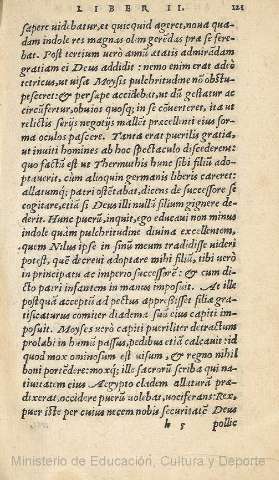 LIBER II. 121
sapere uidebatur, et quicquid ageret, noua qua-
dam indole res magnas olim gerēdas præ se fere-
bat. Post tertium uerò annū ætatis admirādam
gratiam ei Deus addidit : nemo enim erat adeò
tetricus, ut uisa Moysis pulchritudine nō obstu-
pesceret: & persæpe accidebat, ut dū gestatur ac
circūfertur, obuios quosq; in se cōuerteret, ita ut
relictis serijs negotijs malīt præcellenti eius for-
ma oculos pascere. Tanta erat puerilis gratia,
ut inuiti homines ab hoc spectaculo discederent:
quo factū est ut Thermuthis hunc sibi filiū ado-
ptauerit, cùm alioquin germanis liberis careret:
allatumq; patri ostētabat, dicens de successore se
cogitare, etiā si Deus illi nullū filium gignere de-
derit. Hunc puerū, inquit, ego educaui non minus
indole quàm pulchritudine diuina excellentem,
quem Nilus ipse in sinū meum tradidisse uideri
potest, quē decreui adoptare mihi filiū, tibi uerò
in principatu ac imperio successorē : & cum di-
cto patri infantem in manus imposuit. At ille
postquā acceptū ad pectus appressisset filiæ gra-
tificaturus comiter diadema suū eius capiti im-
posuit. Moyses uerò capiti pueriliter detractum
prolabi in humū passus, pedibus etiā calcauit: id
quod mox ominosum est uisum, & regno nihil
boni portēdere: moxq; ille sacrorū scriba qui na-
tiuitatem eius Aegypto cladem allaturā præ-
dixerat, occidere puerū uolebat, uociferans: Rex,
puer iste per cuius necem nobis securitatē Deus
h 5 pollic
Ministerio de Educación, Cultura y Deporte